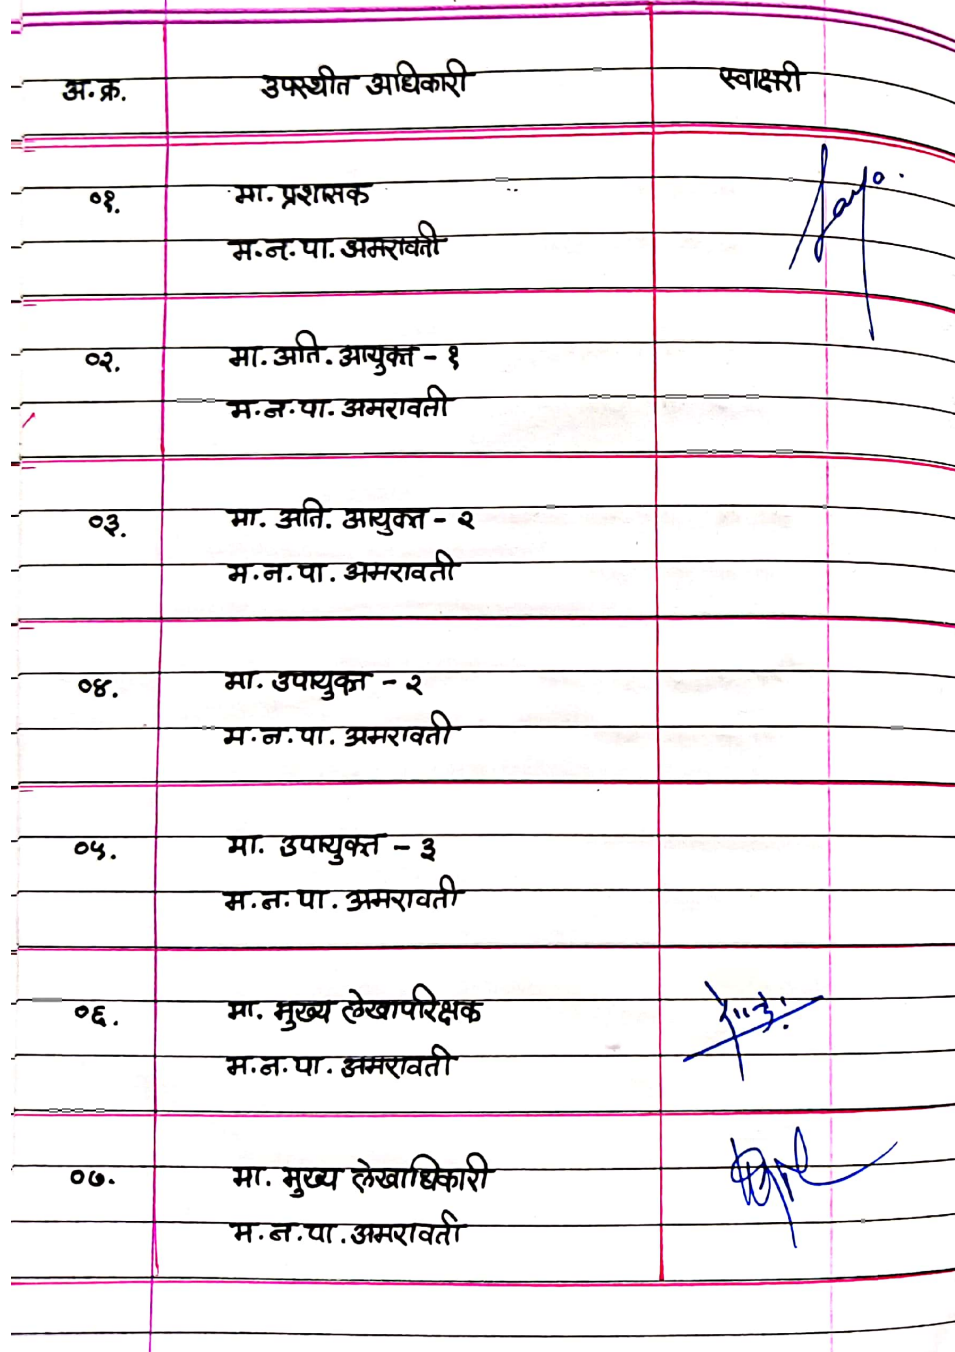 अ.क्र. उपस्थीत अधिकारी स्वाक्षरी
०१. मा. प्रशासक
म.न.पा. अमरावती
०२. मा. अति. आयुक्त - १
म.न.पा. अमरावती
०३. मा. अति. आयुक्त - २
म.न.पा. अमरावती
०४. मा. उपायुक्त - २
म.न.पा. अमरावती
०५. मा. उपायुक्त - ३
म.न.पा. अमरावती
०६. मा. मुख्य लेखापरिक्षक
म.न.पा. अमरावती
०७. मा. मुख्य लेखाधिकारी
म.न.पा. अमरावती